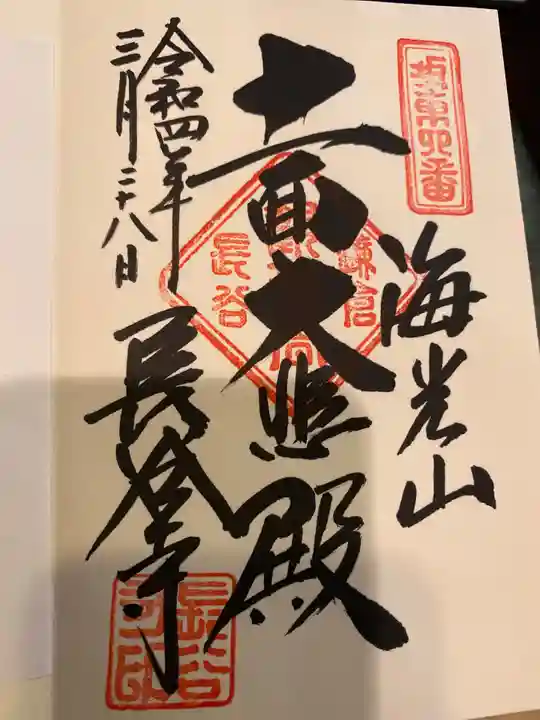 坂東四番
海光山
十一面大悲殿
鎌倉
長谷
長谷寺
令和四年
三月二十八日
長谷寺印